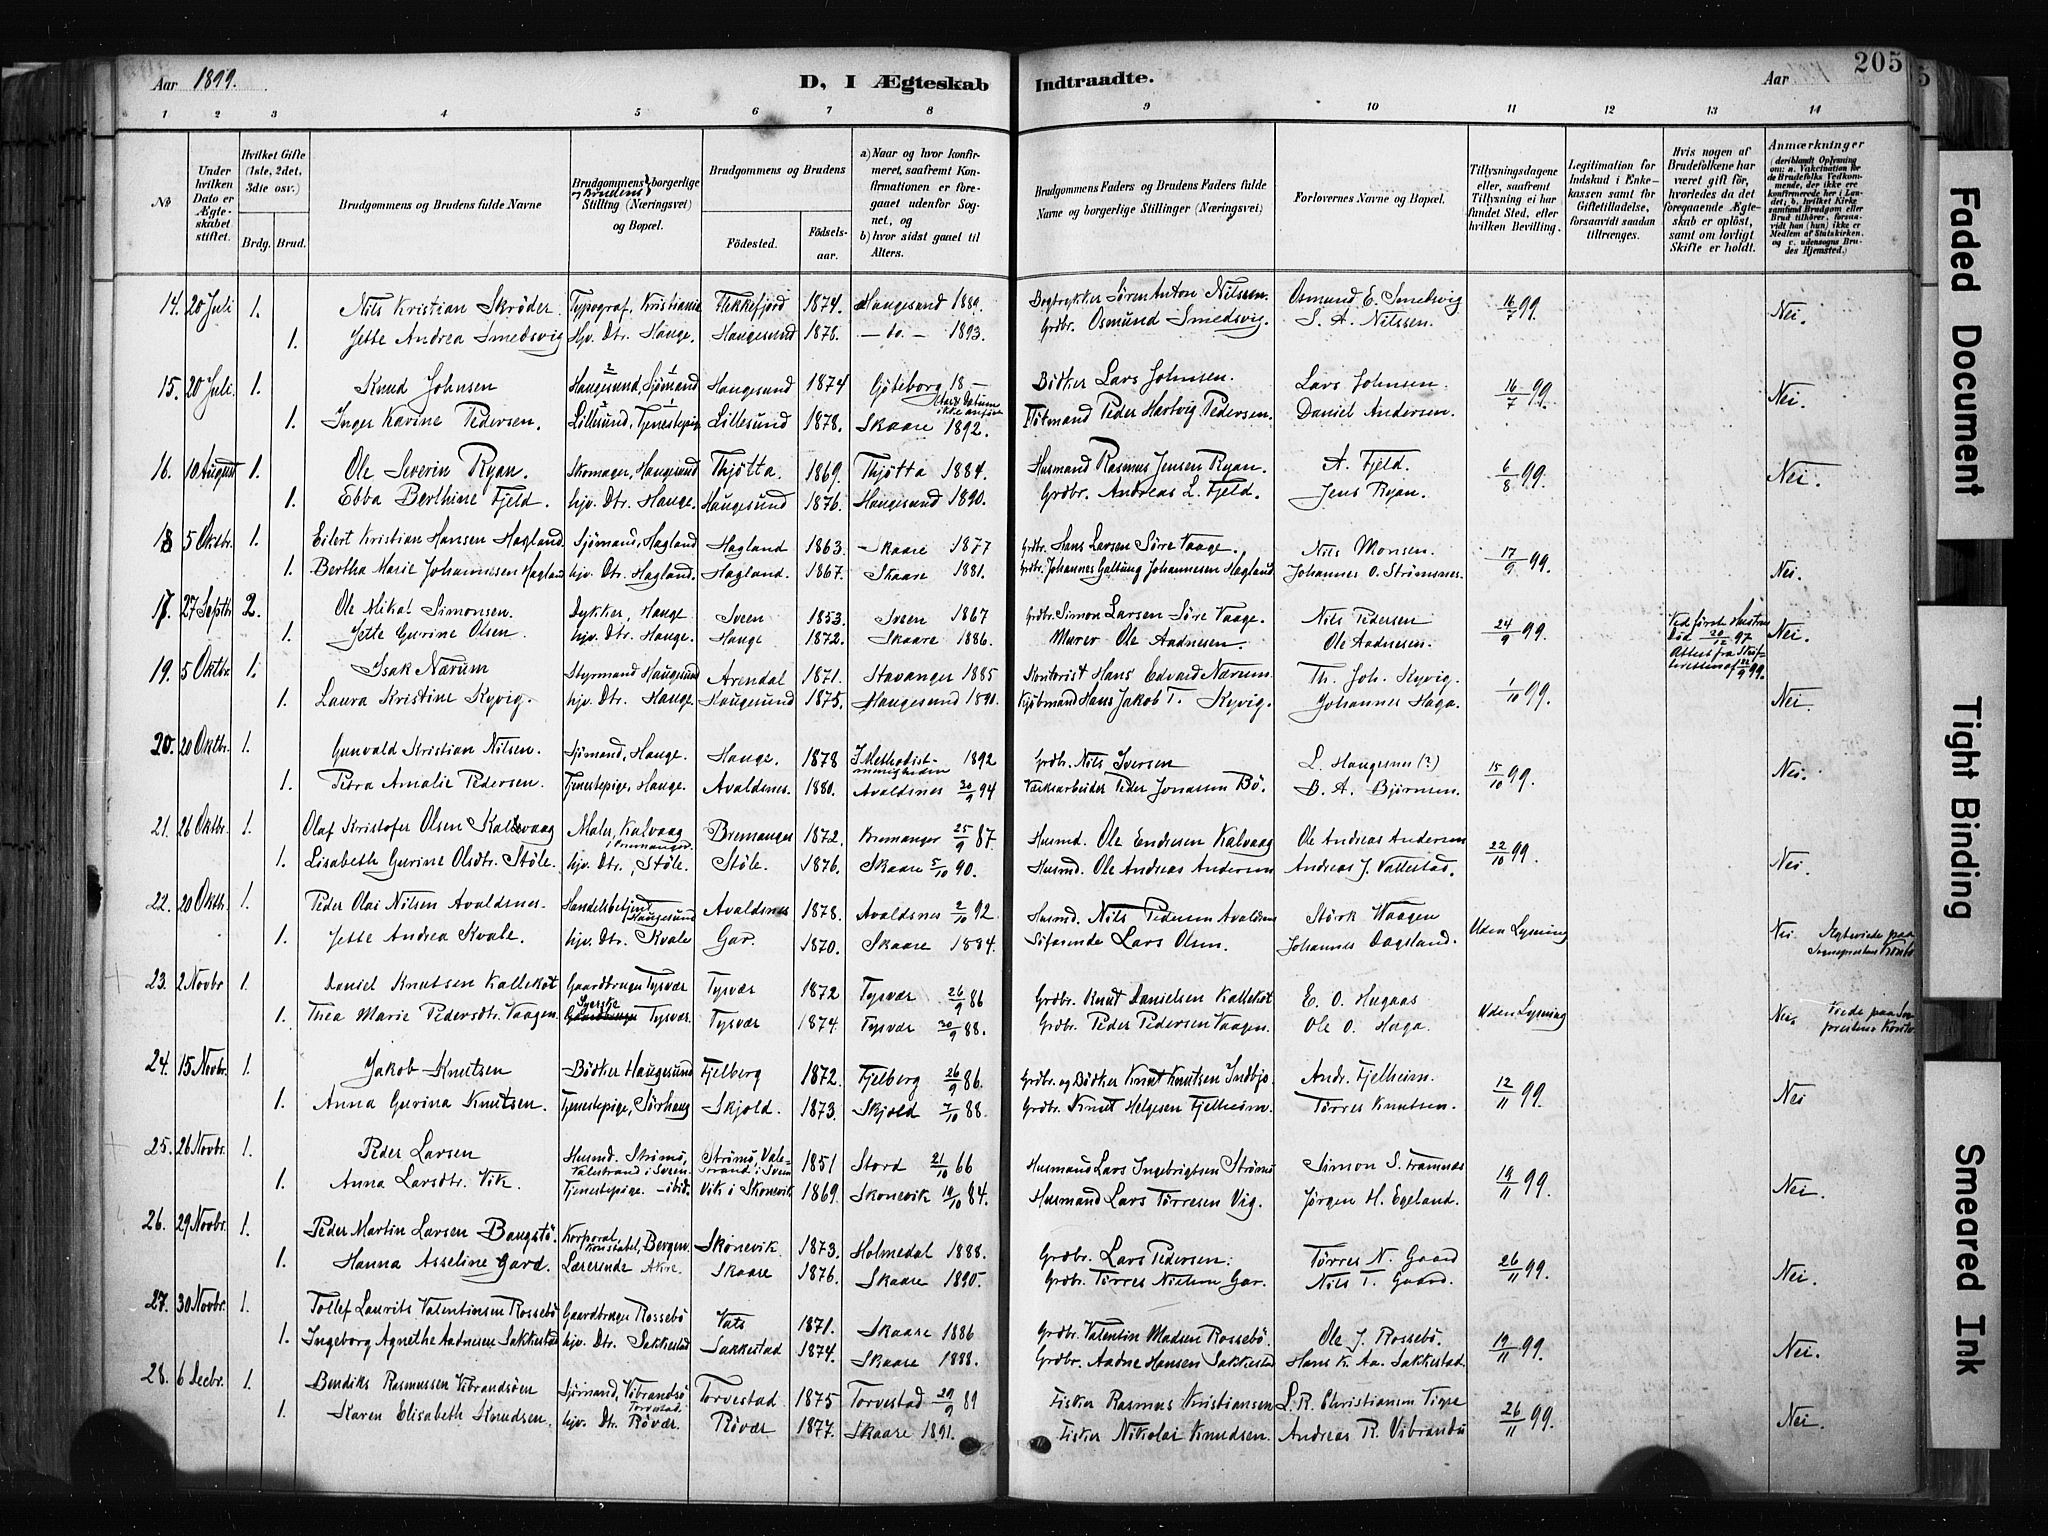 Aar 1899. D, I Ægteskab Indtraadte. Aar 205
1 2 3 4 5 6 7 8 9 10 11 12 13 14
No
Under hvilken Dato er Ægteskabet stiftet.
Hvilket Gifte (1ste, 2det, 3die osv.)
Brdg. Brud.
Brudgommens og Brudens fulde Navne
Brudgommens og Brudens borgerlige Stilling (Næringsvei) og Bopæl.
Brudgommens og Brudens
Födested. Födselsaar.
a) Naar og hvor konfirmeret, saafremt Konfirmationen er foregaaet udenfor Sognet, og
b) hvor sidst gaaet til Alters.
Brudgommens Faders og Brudens Faders fulde Navne og borgerlige Stillinger (Næringsvei)
Forlovernes Navne og Bopæl.
Tillysningsdagene eller, saafremt Tillysning ei har fundet Sted, efter hvilken Bevilling.
Legitimation for Indskud i Enkekassen samt for Giftetilladelse, forsaavidt saadan tiltrænges.
Hvis nogen af Brudefolkene har været gift før, hvorledes da det foregaaende Ægteskab er opløst, samt om lovligt Skifte er holdt.
Anmærkninger
(deriblandt Oplysning om: a. Vakcination for de Brudefolks Vedkommende, der ikke ere konfirmerede her i Landet; b. hvilket Kirkesamfund Brudgom eller Brud tilhörer, forsaavidt han (hun) ikke er Medlem af Statskirken, og c. udensogns Brudes Hjemsted.)
14. 20 Juli 1. Nils Kristian Skröder Typograf, Kristiania Flekkefjord 1874. Haugesund 1889. Bogtrykker Sören Anton Nilssen. Osmund E. Smedsvig 16/7 99. Nei.
1. Jette Andrea Smedsvig Hjv. Dtr. Hauge. Haugesund 1878. — do — 1893. Grdbr. Osmund Smedsvig. S. A. Nilssen.
15. 20 Juli. 1. Knud Johnsen Haugesund, Sjømand Haugesund 1874 Göteborg 18— Bödker Lars Johnsen. Lars Johnsen. 16/7 99. Nei.
1. Inger Karine Pedersen. Lillesund, Tjenestepige Lillesund 1878. Skaare 1892. Peder Hartvig Pedersen. Daniel Andersen.
16. 10 August 1. Ole Severin Ryan. Skomager, Haugesund Thjøtta. 1869. Thjøtta 1884. Husmand Rasmus Jensen Ryan. A. Fjeld. 6/8 99. Nei.
1. Ebba Berthine Fjeld. hjv. Dtr. Hauge. Haugesund 1876. Haugesund 1890. Grdbr. Andreas L. Fjeld. Jens Ryan.
18 5 Oktbr. 1. Eilert Kristian Hansen Hagland. Sjömand, Hagland Hagland 1863. Skaare 1877 Grdbr. Hans Larsen Söre Vaage. Nils Monsen. 17/9 99. Nei.
1. Bertha Marie Johannesen Hagland hjv. Dtr. Hagland. Hagland. 1867. Skaare 1881. Grdbr. Johannes Galtung Johannesen Hagland Johannes O. Strömsnes.
17. 27 Septbr 2. Ole Mikal Simonsen. Dykker, Hauge Sveen 1853. Sveen 1867 Grdbr. Simon Larsen Söre Vaage. Nils Pedersen 24/9 99. Ved først Hustrus Död 20/12 97 Attest fra Skifteretten af 22/9 99. Nei.
1. Jette Gurine Olsen. hjv. Dtr. Hauge. Hauge 1872. Skaare 1886. Murer Ole Aadnesen. Ole Aadnesen.
19. 5 Oktbr. 1. Isak Nærum Styrmand Haugesund Arendal 1871. Stavanger 1885 Hans Edvard Nærum. Th. Joh. Kyvig. 1/10 99. Nei.
1. Laura Kristine Kyvig. hjv. Dtr. Hauge. Haugesund 1875. Haugesund 1890. Kjöbmand Hans Jakob T. Kyvig. Johannes Haga.
20. 20 Oktbr. 1. Gunvald Kristian Nilsen. Sjömand, Hauge. Hauge. 1878 I Methodistmenigheden 1892 Grdbr. Nils Iversen L. Haugesnes (?) 15/10 99. Nei.
1. Petra Amalie Pedersen. Tjenestepige, Hauge. Avaldsnes 1880. Avaldsnes 30/9 94 Værksarbeider Peder Jonassen Bö. B. A. Björnsen.
21. 26 Oktbr. 1. Olaf Kristofer Olsen Kallevaag Maler, Kalvaag i Bremanger. Bremanger 1872. Bremanger 25/9 87. Husmd. Ole Endresen Kalvaag Ole Andreas Andersen 22/10 99. Nei.
1. Lisabeth Gurine Olsdtr. Støle. hjv. Dtr., Støle. Støle. 1876. Skaare 5/10 90. Husmd. Ole Andreas Andersen Andreas J. Vallestad.
22. 20 Oktbr. 1. Peder Olai Nilsen Avaldsnes. Handelsbetjent Haugesund Avaldsnes 1878. Avaldsnes 2/10 92. Husmd. Nils Pedersen Avaldsnes Störk Waagen Uden Lysning Nei Ægteviede paa Sogneprestens Kontor
1. Jette Andrea Kvale. hjv. Dtr. Kvale Gar. 1870. Skaare 1884. Söfarende Lars Olsen. Johannes Dagsland.
23. 2 Novbr 1. Daniel Knutsen Kallekot Gaardbruger Tysvær Tysvær 1872 Tysvær 26/9 86 Grdbr. Knut Danielsen Kallekot E. O. Hugaas Uden Lysning Nei. Viede paa Sognprestens Kontor
1. Thea Marie Pedersdtr. Vaagen. Syerske Tysvær. Tysvær 1874. Tysvær 30/9 88. Grdbr. Peder Pedersen Vaagen. Ole O. Haga.
24. 15 Novbr. 1. Jakob Knutsen Bödker Haugesund Fjelberg 1872. Fjelberg 26/9 86. Grdbr. og Bödker Knut Knutsen Indbjo. Andr. Fjelheim. 12/11 99. Nei
1. Anna Gurina Knutsen. Tjenestepige, Sørhaug Skjold. 1873. Skjold 7/10 88. Grdbr. Knut Helgesen Fjelheim. Törres Knutsen.
25. 26 Novbr. 1. Peder Larsen Husmd. Strömö, Valestrand i Sveen. Strömö, Valestrand i Sveen 1851 Stord 21/10 66 Husmand Lars Ingebrigtsen Strömö Simon S. Framnæs 19/11 99. Nei.
1. Anna Larsdtr. Vik. Tjenestepige. - ibid. Vik i Skonevik 1869. Skonevik 19/10 84. Husmand Lars Tørresen Vig. Jørgen H. Egeland.
26. 29 Novbr. 1. Peder Martin Larsen Bangstö. Korporal, Konstabel, Bergen. Skonevik. 1873. Holmedal 1888. Grdbr. Lars Pedersen. Tørres N. Gaard 26/11 99. Nei.
1. Hanna Asseline Gard. Lærerinde Akre. Skaare 1876. Skaare 1890. Grdbr. Törres Nielsen Gar. Nils T. Gaard.
27. 30 Novbr. 1. Tollef Laurits Valentinsen Rossebö Gaardbruger Rossebö Vats 1871. Skaare 1886 Grdbr. Valentin Madsen Rossebö. Ole J. Rossebö. 19/11 99. Nei.
1. Ingeborg Agnethe Aadnesen Sakkestad hjv. Dtr. Sakkestad Sakkestad 1874. Skaare 1888. Grdbr. Aadne Hansen Sakkestad Hans K. Aa. Sakkestad.
28. 6 Decbr. 1. Bendiks Rasmussen Vibrandsöen Sjömand, Vibrandsö Torvestad. Torvestad 1875 Torvestad 29/9 89 Fisker Rasmus Kristiansen L. R. Christiansen 26/11 99. Nei.
1. Karen Elisabeth Knudsen. hjv. Dtr. Rövær. Rövær 1877. Skaare 1891. Fisker Nikolai Knudsen. Andreas R. Vibrandsö
Faded Document
Tight Binding
Smeared Ink